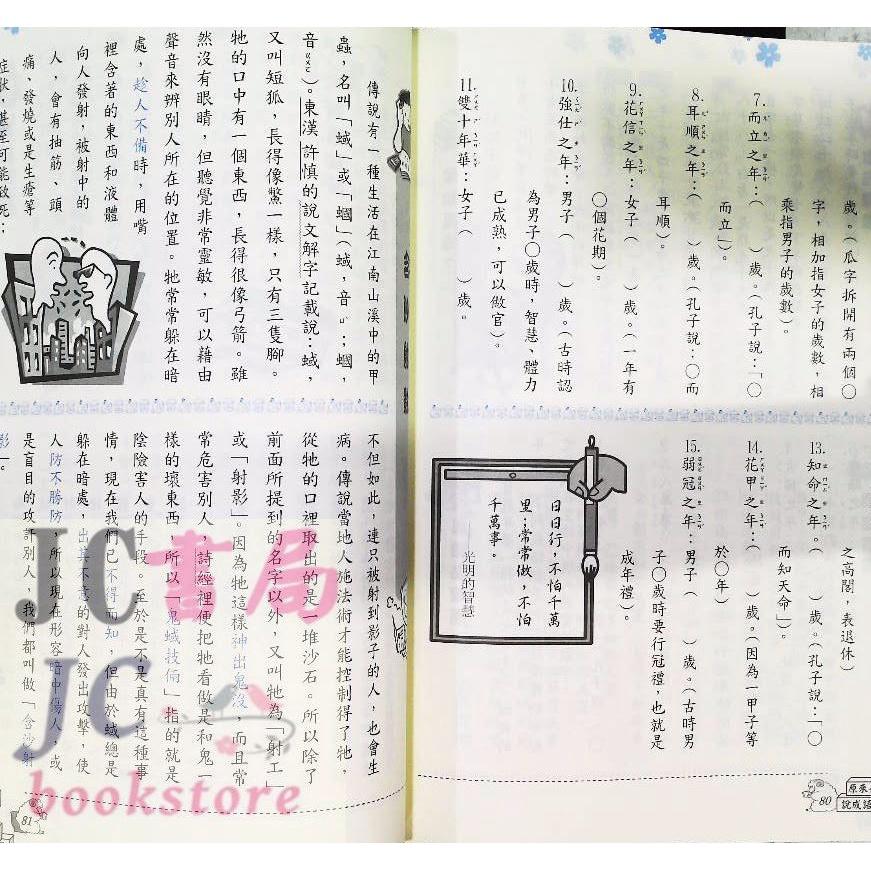 歲。（瓜字拆開有兩個○
字，相加指女子的歲數，相
乘指男子的歲數）。
7.而立之年：（　）歲。（孔子說：「○
而立」）。
8.耳順之年：（　）歲。（孔子說：○而
耳順）。
9.花信之年：女子（　）歲。（一年有
○個花期）。
10.強仕之年：男子（　）歲。（古時認
為男子○歲時，智慧、體力
已成熟，可以做官）。
11.雙十年華：女子（　）歲。
之高閣，表退休）
13.知命之年。（　）歲。（孔子說：「○
而知天命」）。
14.花甲之年：（　）歲。（因為一甲子等
於○年）
15.弱冠之年：男子（　）歲。（古時男
子○歲時要行冠禮，也就是
成年禮）。
日日行，不怕千萬
里；常常做，不怕
千萬事。
——光明的智慧
原來
說成語
80
傳說有一種生活在江南山溪中的甲
蟲，名叫「蜮」或「蟈」（蜮，音ㄩˋ；蟈，
音ㄍㄨㄛ）。東漢 許慎的說文解字記載說：蜮，
又叫短狐，長得像鱉一樣，只有三隻腳。
牠的口中有一個東西，長得很像弓箭。雖
然沒有眼睛，但聽覺非常靈敏，可以藉由
聲音來辨別人所在的位置。牠常常躲在暗
處，趁人不備時，用嘴
裡含著的東西和液體
向人發射，被射中的
人，會有抽筋、頭
痛、發燒或是生瘡等
症狀，甚至可能致死；
不但如此，連只被射到影子的人，也會生
病。傳說當地人施法術才能控制得了牠，
從牠的口裡取出的是一堆沙石。所以除了
前面所提到的名字以外，又叫牠為「射工」
或「射影」。因為牠這樣神出鬼沒，而且常
常危害別人，詩經裡便把牠看做是和鬼一
樣的壞東西，所以「鬼蜮技倆」指的就是
陰險害人的手段。至於是不是真有這種事
情，現在我們已不得而知，但由於蜮總是
躲在暗處，出其不意的對人發出攻擊，使
人防不勝防，所以現在形容暗中傷人，或
是盲目的攻訐別人，我們都叫做「含沙射
影」。
81
JC書局
JC
bookstore